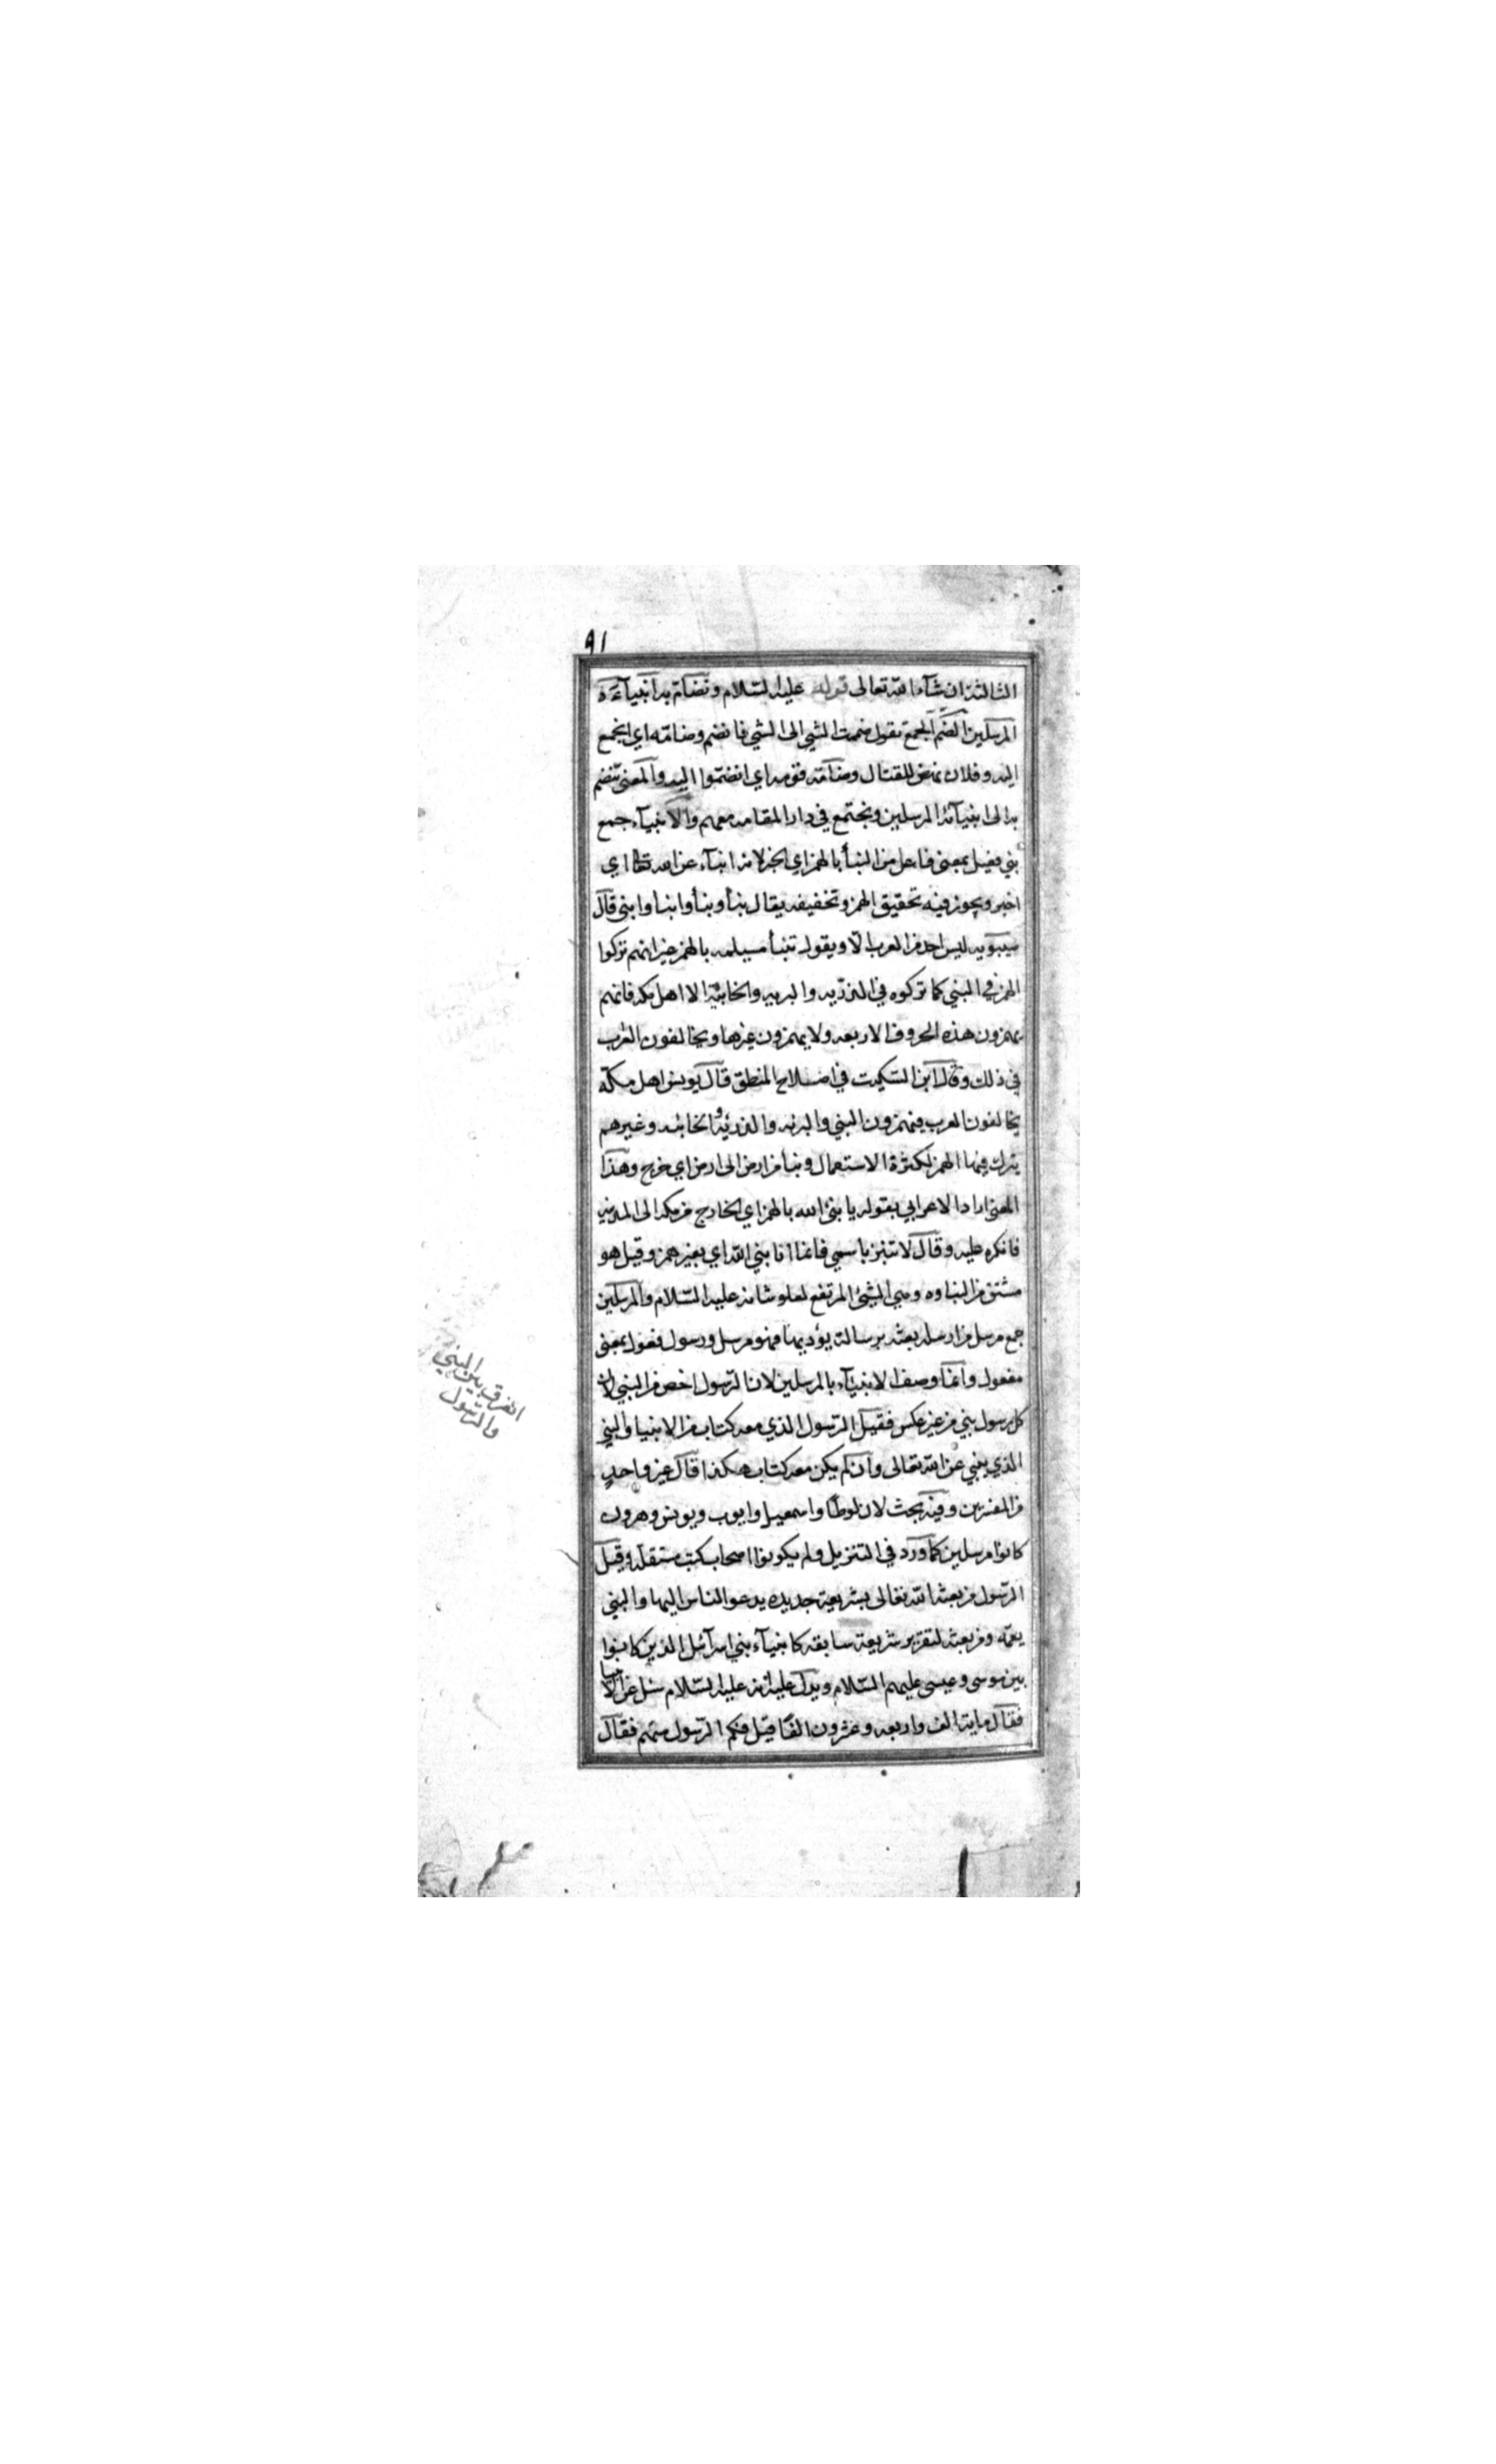 ٩١
الثالثة ان شآء الله تعالى قوله عليه السلام ونضام به انبيآءه
المرسلين الضم الجمع تقول ضممت الشي الى الشي فانضم وضامّه اي انجمع
اليه وفلان نهض للقتال وضامّه قومه اي انضمّوا اليه والمعنى ننضم
به الى انبيآئه المرسلين ونجتمع في دار المقامه معهم والانبيآء جمع
نبي فعيل بمعنى فاعل من النبأ بالهمز اي الخبر لانه انبآء عن الله تعا اي
اخبر ويجوز فيه تحقيق الهمز وتخفيفه يقال نبأ ونبأ وانبأ وانبى قال
سيبويه ليس احد من العرب الّا ويقول تنبأ مسيلمه بالهمز غير انهم تركوا
الهمز في النبي كما تركوه في الذرّيه والبريه والخابئه الا اهل مكه فانهم
يهمزون هذه الحروف الاربعه ولا يهمزون غيرها ويخالفون العرب
في ذلك وقال ابن السّكيت في اصلاح المنطق قال يونس اهل مكّه
يخالفون العرب فيهمزون النبي والبرئه والذرئه والخابئه وغيرهم
يترك فيها الهمز لكثرة الاستعمال ونبأ من ارض الى ارض اي خرج وهذا
المعنى اراد الاعرابي بقوله يا نبئ الله بالهمز اي الخارج من مكه الى المدينه
فانكره عليه وقال لا تنبز باسمي فانما انا نبي الله اي بغير همز وقيل هو
مشتق من النباوه وهي الشئ المرتفع لعلو شانه عليه السّلام والمرسلين
جمع مرسل من ارسله بعثه برسالة يؤديها فهو مرسل ورسول فعول بمعنى
مفعول وانما وصف الانبيآء بالمرسلين لان الرّسول اخص من النبي لان
كل رسول نبي من غير عكس فقيل الرّسول الذي معه كتاب من الانبيا والنبي
الذي ينبي عن الله تعالى وان لم يكن معه كتاب هكذا قال غير واحدٍ
من المفسرين وفيه بحث لان لوطًا واسمعيل وايوب ويونس وهرون
كانوا مرسلين كما ورد في التنزيل ولم يكونوا اصحاب كتب مستقله وقيل
الرّسول من بعثه الله تعالى بشريعة جديده يدعو الناس اليها والنبي
يعمّه ومن بعثه لتقرير شريعة سابقه كانبيآء بني اسرآئيل الذين كانوا
بين موسى وعيسى عليهم السّلام ويدل عليه انه عليه السّلام سئل عن الانبيا
فقال مايه الف واربعه وعشرون الفًا قيل فكم الرّسول منهم فقال
الفرق بين النبي
والرّسول